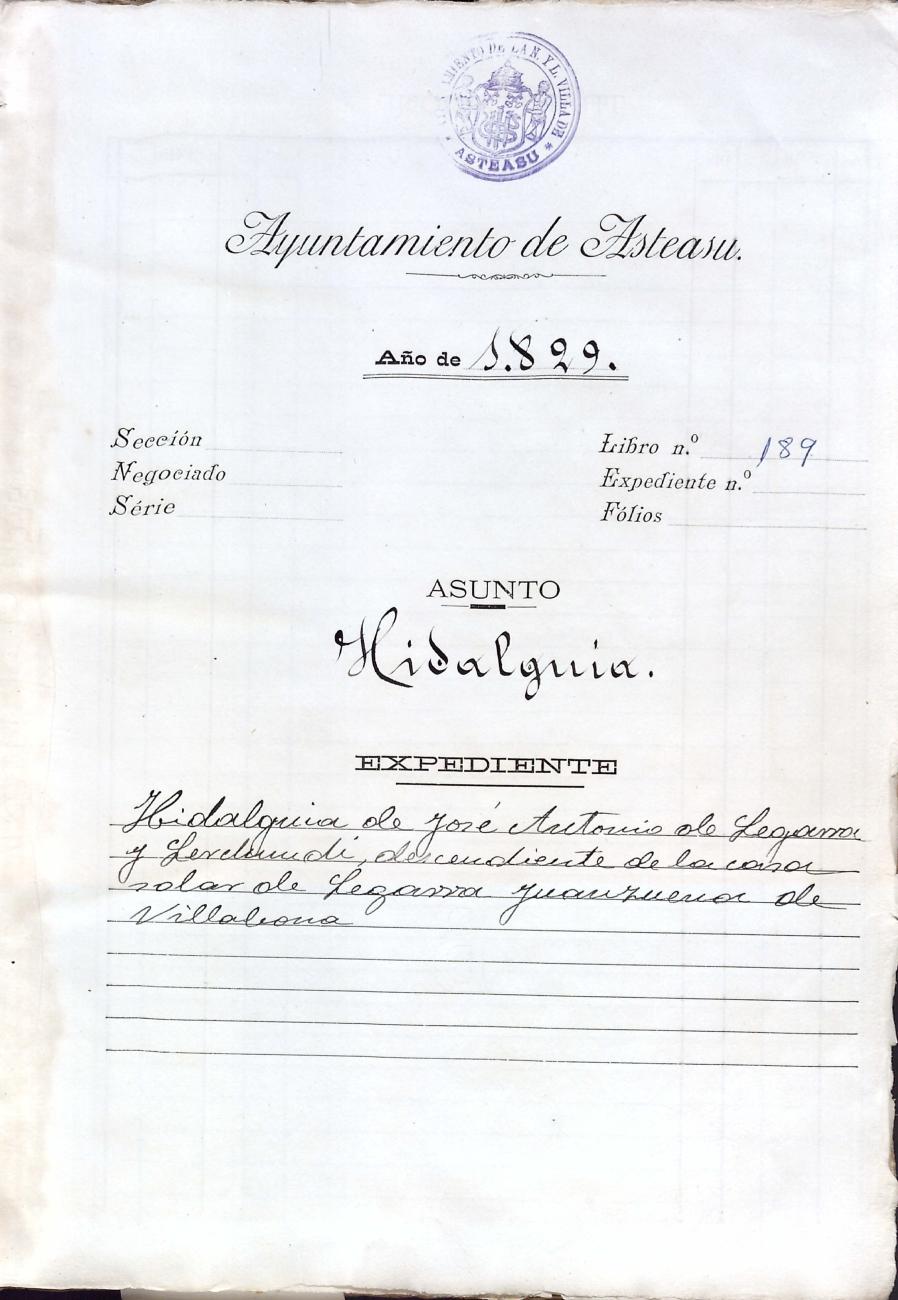 AYUNTAMIENTO DE LA N. Y L. VILLA DE
* ASTEASU *
Ayuntamiento de Asteasu.
Año de 1.829.
Sección
Negociado
Série
Libro n.º 189
Expediente n.º
Fólios
ASUNTO
Hidalguia.
EXPEDIENTE
Hidalguia de José Antonio de Legarra
y Lerchundi, descendiente de la casa
solar de Legarra Juanzuena de
Villabona